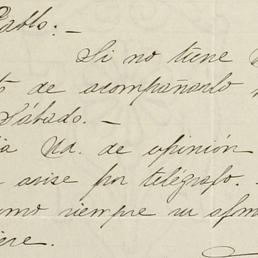 Pablo.-
Si no tiene
de acompañarlo
Sábado.-
Ud. de opinión
avise por telégrafo.
como siempre su afmo